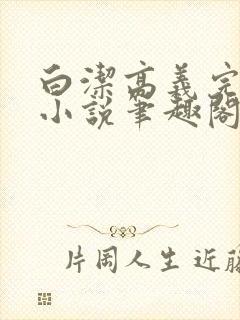 白潔高義完
小说筆趣閣
片岡人生 近藤